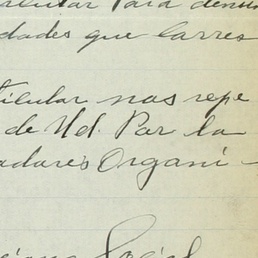 Para denun
dades que carres
ticular nos repe
de Ud. Por la
adores Organi-
Social